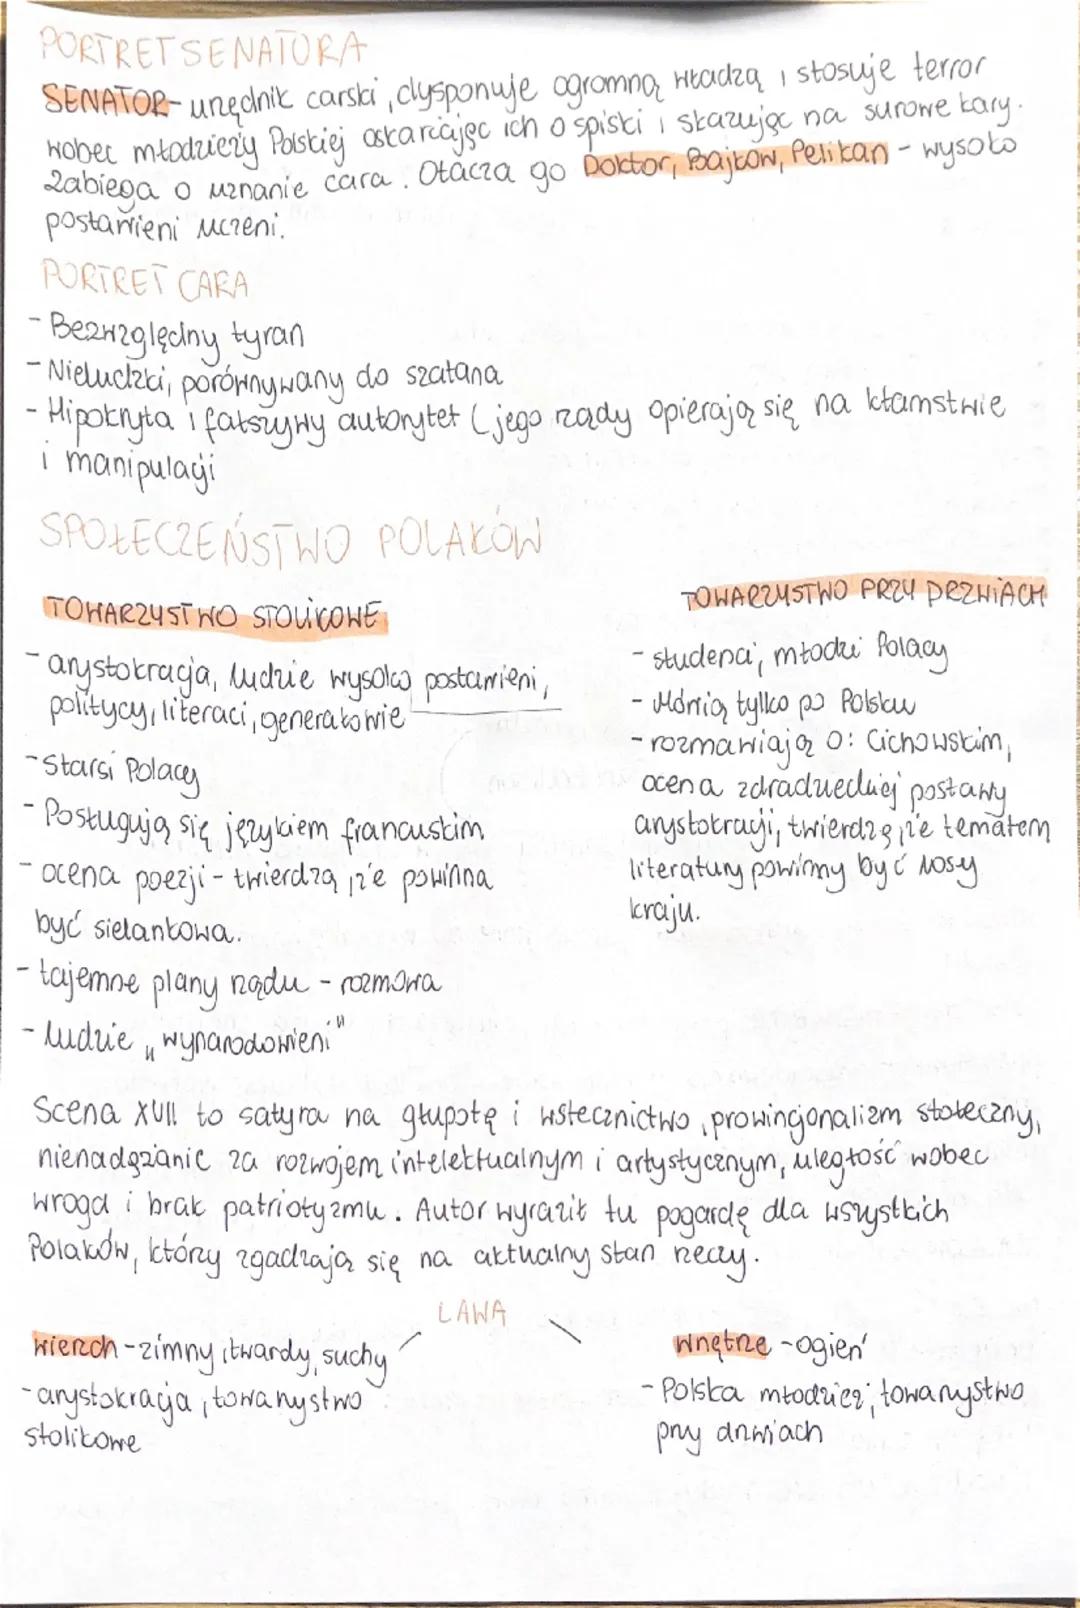 PORTRET SENATORA
SENATOR - urzędnik carski, dysponuje ogromną władzą i stosuje terror
wobec młodzieży Polskiej oskarżając ich o spiski i skazując na surowe kary.
Zabiega o uznanie cara. Otacza go Doktor, Bajkow, Pelikan - wysoko
postawieni uczeni.
PORTRET CARA
- Bezwzględny tyran
- Nieludzki, porównywany do szatana
- Hipokryta i fałszywy autorytet (jego rządy opierają się na kłamstwie
i manipulacji
SPOŁECZEŃSTWO POLAKÓW
TOWARZYSTWO STOLIKOWE
- arystokracja, ludzie wysoko postawieni,
politycy, literaci, generałowie
- Starsi Polacy
- Posługują się językiem francuskim
- ocena poezji - twierdzą, że powinna
być sielankowa.
- tajemne plany rządu - rozmowa
- ludzie „wynarodowieni"
TOWARZYSTWO PRZY DRZWIACH
- studenci, młodzi Polacy
- Mówią tylko po Polsku
- rozmawiają o: Cichowskim,
ocena zdradzieckiej postawy
arystokracji, twierdzą, że tematem
literatury powinny być losy
kraju.
Scena XVII to satyra na głupotę i wstecznictwo, prowincjonalizm stołeczny,
nienadążanie za rozwojem intelektualnym i artystycznym, uległość wobec
wroga i brak patriotyzmu. Autor wyraził tu pogardę dla wszystkich
Polaków, którzy zgadzają się na aktualny stan rzeczy.
LAWA
wierzch - zimny, twardy, suchy
- arystokracja, towarzystwo
stolikowe
wnętrze - ogień
- Polska młodzież, towarzystwo
przy drzwiach